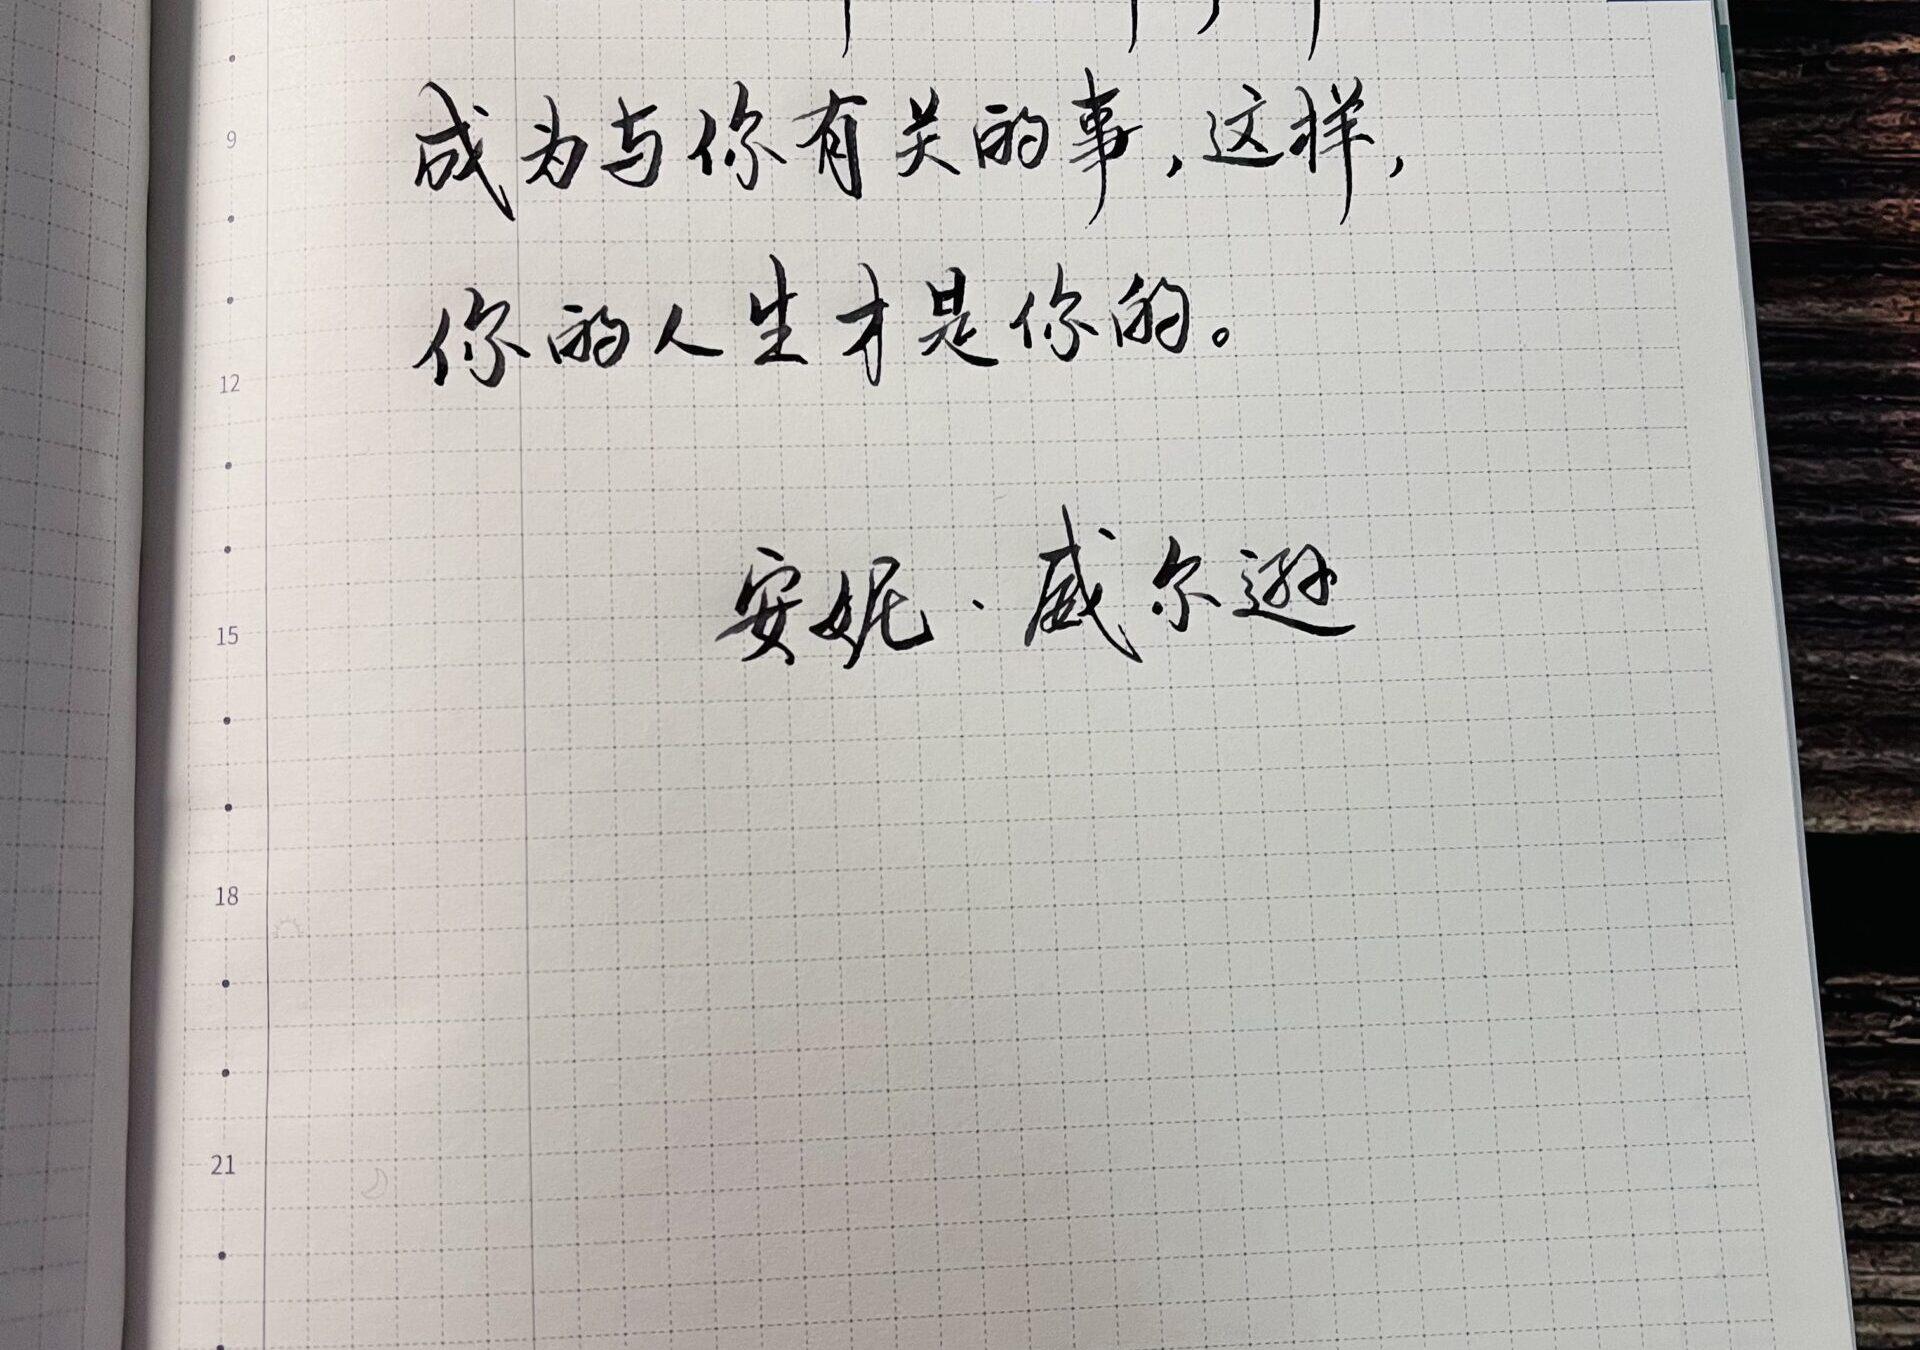 9
成为与你有关的事，这样，
你的人生才是你的。
12
安妮·威尔逊
15
18
21